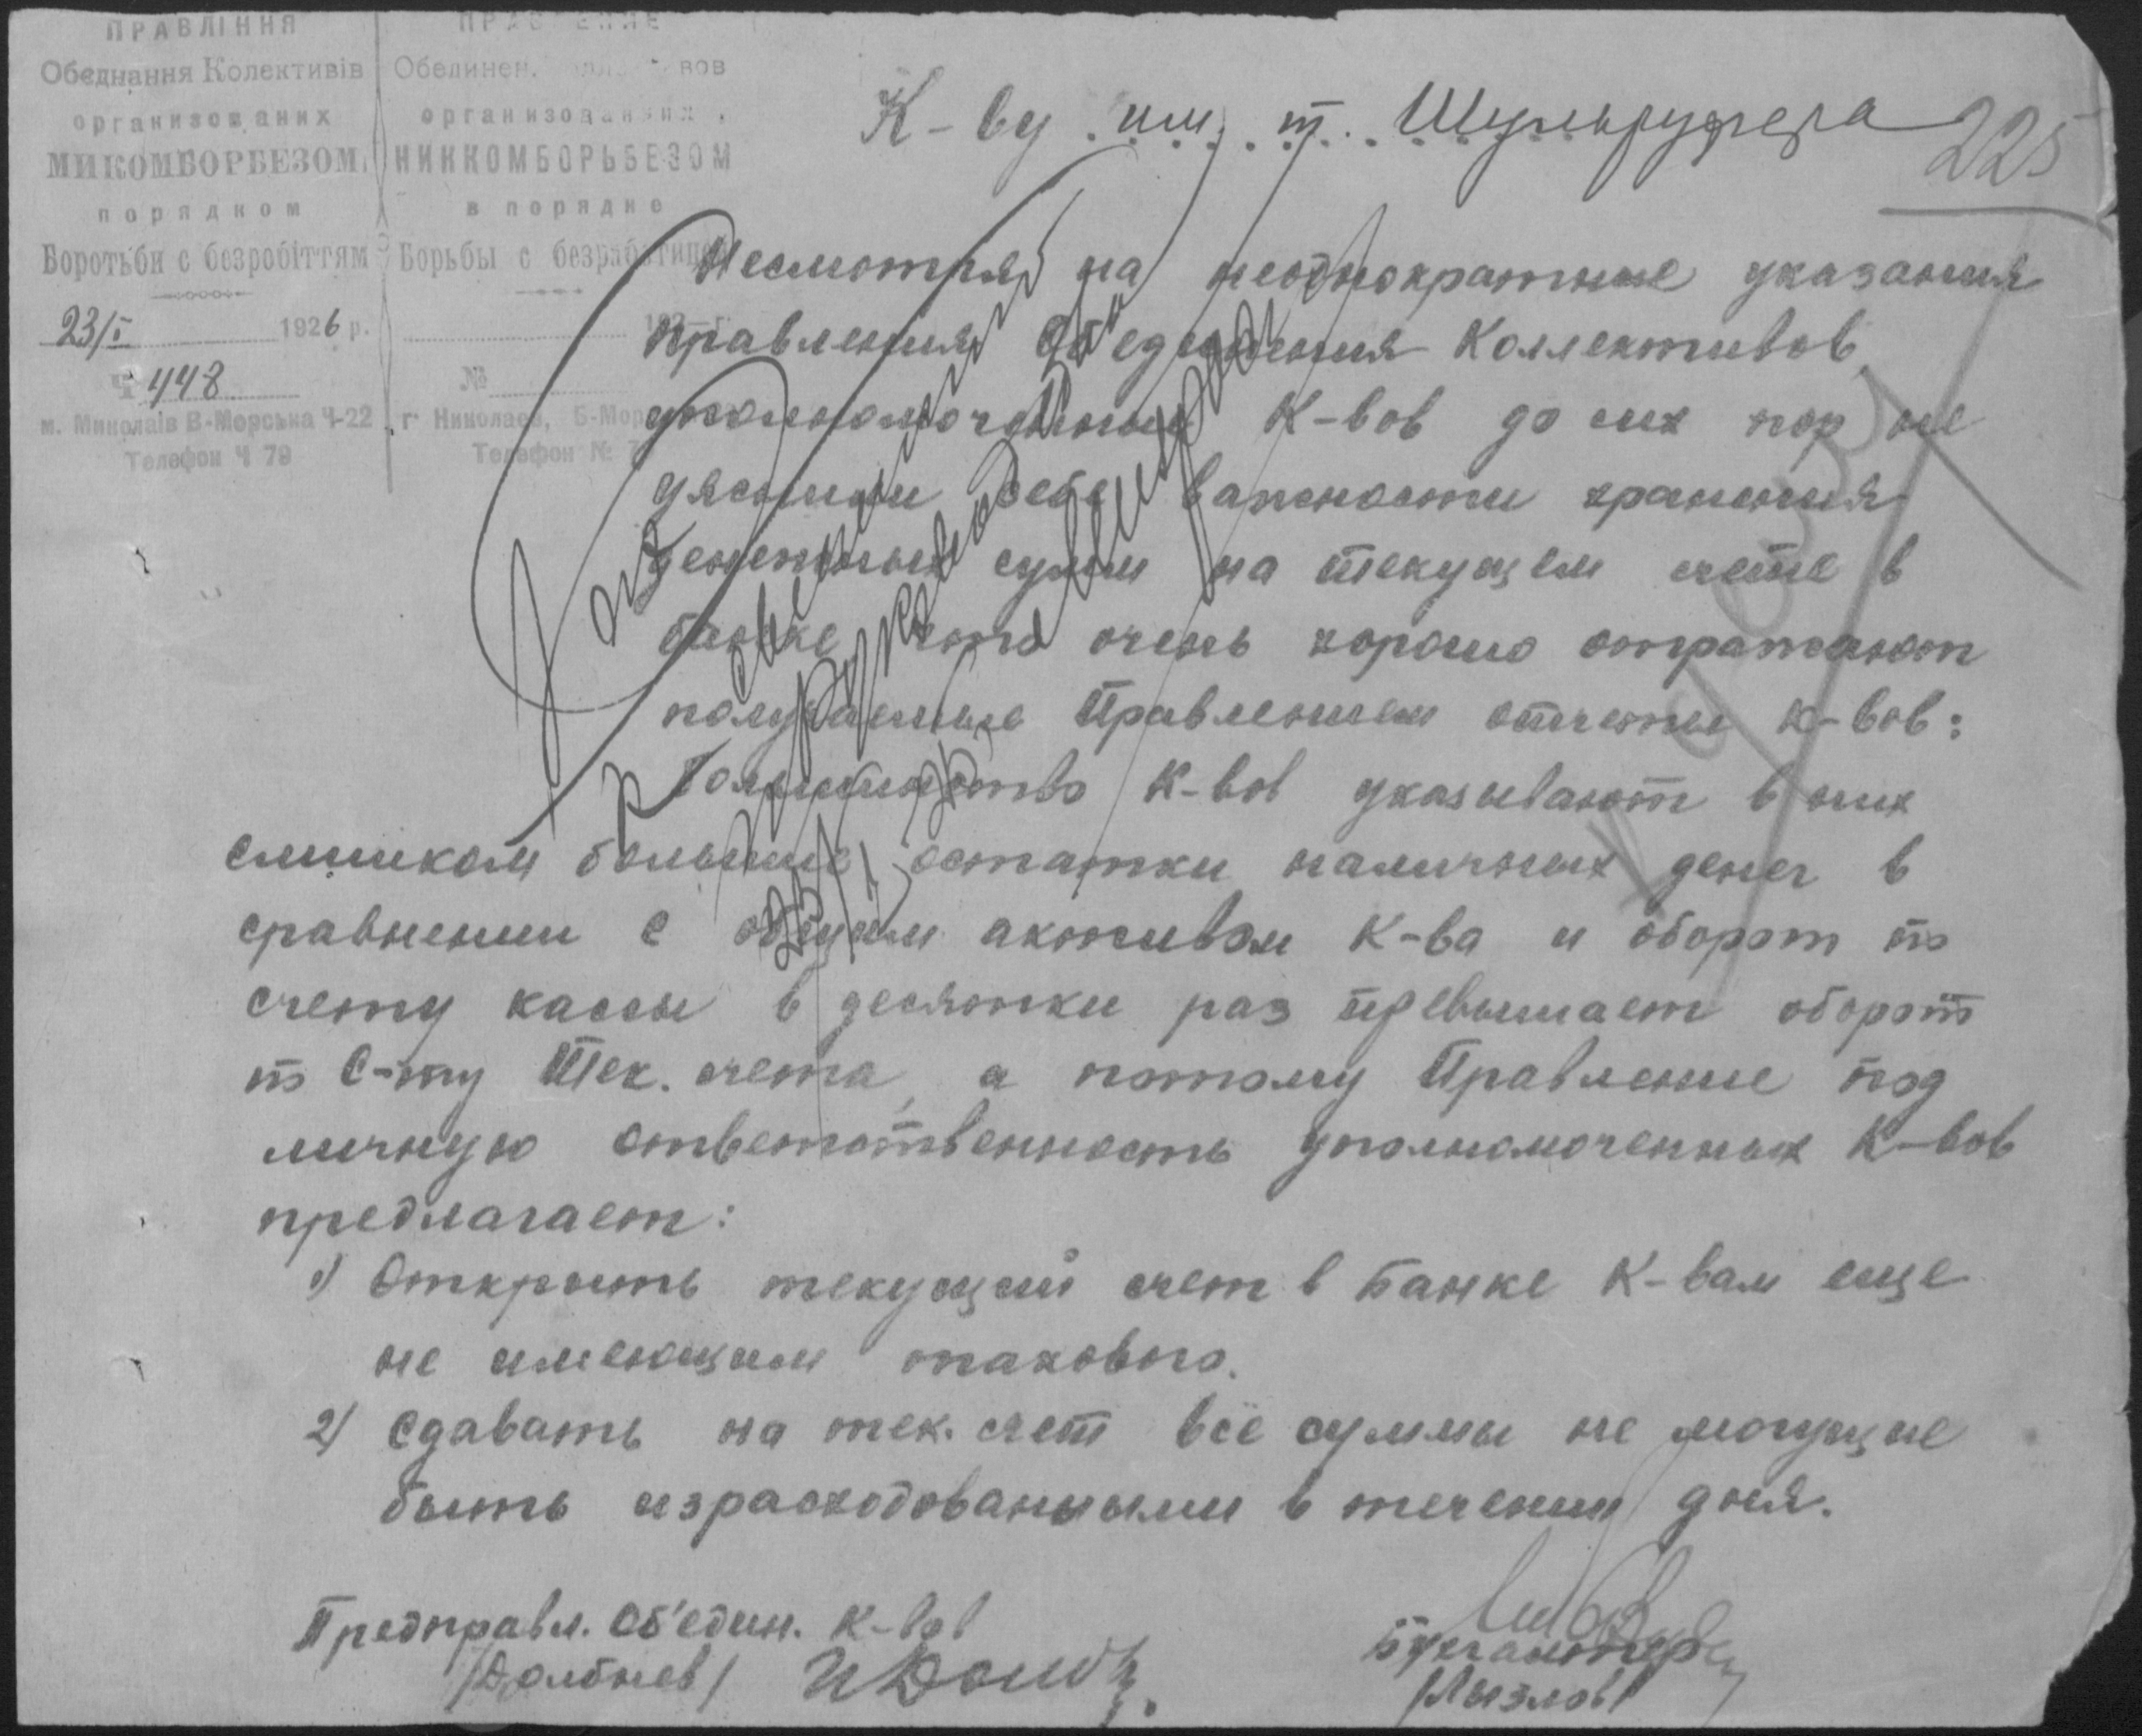 ПРАВЛІННЯ
Обєднання Колективів
организованих
МИКОМБОРБЕЗОМ
порядком
Боротьби с безробіттям
23/I 1926 р.
Ч 448
м. Миколаів В-Морська Ч-22
Телефон Ч 79
ПРАВЛЕНИЕ
организованных
НИККОМБОРЬБЕЗОМ
в порядке
Борьбы с безработицей
192 г.
№
г. Николаев, Б-Мор
Телефон № 7
К-ву им. т. Шумрупера
225
Несмотря на неоднократные указания
правления Объединения Коллективов,
уполномоченные К-вов до сих пор не
уяснили себе важности хранения
денежных сумм на текущем счете в
банке, что очень хорошо отражают
получаемые Правлением отчеты К-вов:
Большинство К-вов указывают в них
слишком большие остатки наличных денег в
сравнении с общим активом К-ва и оборот по
счету кассы в десятки раз превышает оборот
по С-ту Тек. счета, а потому Правление под
личную ответственность уполномоченных К-вов
предлагает:
1) Открыть текущий счет в Банке К-вам еще
не имеющим такового.
2) Сдавать на тек. счет всё суммы не могущие
быть израсходованными в течении дня.
Предправл. Об'един. К-вов
/Долбнев/
Бухгалтер
/Лызлов/
к руководству